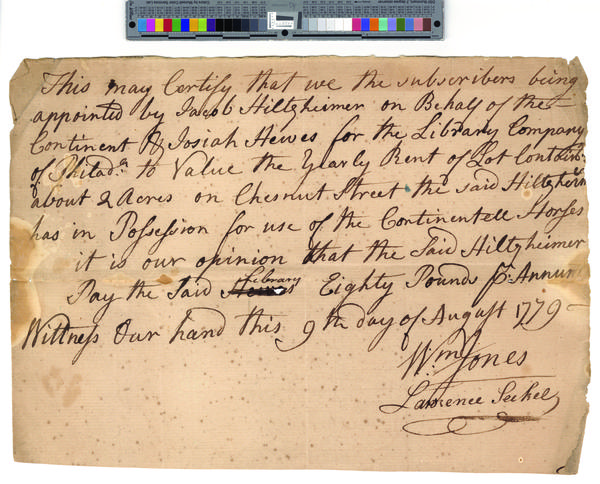 This may Certify that we the subscribers being
appointed by Jacob Hiltzheimer on Behalf of the
Continent & Josiah Hewes for the Library Company
of Philad.ᵃ to Value the Yearly Rent of Lot Contain.g
about 2 Acres on Chesnut Street the Said Hiltzheim
has in Possession for use of the Continentell Horses
it is our opinion that the Said Hiltzheimer
Pay the Said Library Eighty Pounds ⅌ Annum
Wittness Our hand this 9th day of August 1779
Wm Jones
Lawrence Seckel